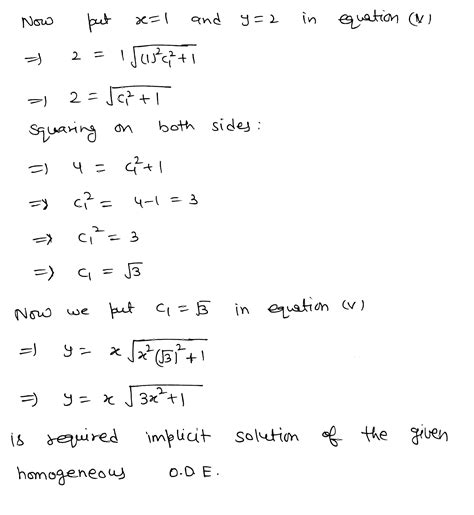 Now put x=1 and y=2 in equation (V)
⇒ 2 = 1 √((1)²c₁²+1)
⇒ 2 = √(c₁²+1)
Squaring on both sides:
⇒ 4 = c₁²+1
⇒ c₁² = 4-1 = 3
⇒ c₁² = 3
⇒ c₁ = √3
Now we put c₁ = √3 in equation (V)
⇒ y = x √(x²(√3)²+1)
⇒ y = x √(3x²+1)
is required implicit solution of the given
homogeneous O.D.E.